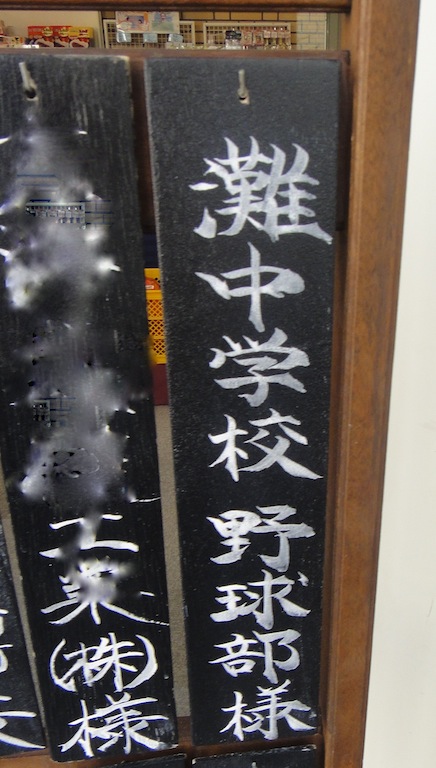 灘中学校 野球部様
工業(株)様